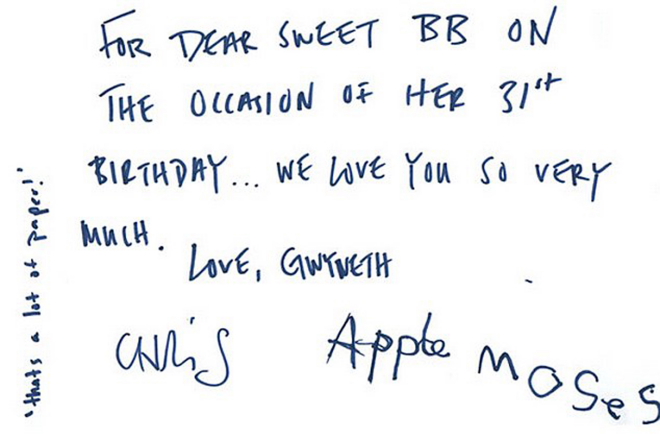 FOR DEAR SWEET BB ON
THE OCCASION OF HER 31st
BIRTHDAY... WE LOVE YOU SO VERY
MUCH.
LOVE, GWYNETH
CHRiS Apple MOSeS
"thats a lot of paper!"